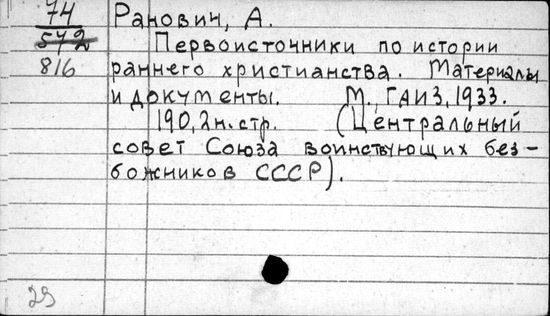 74
572
816
Ранович, А.
Первоисточники по истории
раннего христианства. Материалы
и документы. М., ГАИЗ, 1933.
190, 2 н. стр. (Центральный
совет Союза воинствующих без-
божников СССР).
29